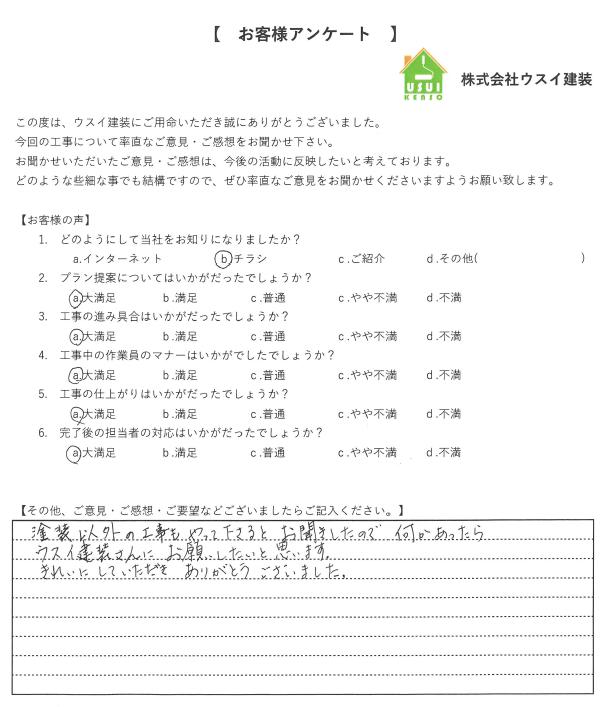 【　お客様アンケート　】
USUI
KENSO
株式会社ウスイ建装
この度は、ウスイ建装にご用命いただき誠にありがとうございました。
今回の工事について率直なご意見・ご感想をお聞かせ下さい。
お聞かせいただいたご意見・ご感想は、今後の活動に反映したいと考えております。
どのような些細な事でも結構ですので、ぜひ率直なご意見をお聞かせくださいますようお願い致します。
【お客様の声】
1.　どのようにして当社をお知りになりましたか？
a.インターネット　b.チラシ　c.ご紹介　d.その他(　)
2.　プラン提案についてはいかがだったでしょうか？
a.大満足　b.満足　c.普通　c.やや不満　d.不満
3.　工事の進み具合はいかがだったでしょうか？
a.大満足　b.満足　c.普通　c.やや不満　d.不満
4.　工事中の作業員のマナーはいかがでしたでしょうか？
a.大満足　b.満足　c.普通　c.やや不満　d.不満
5.　工事の仕上がりはいかがだったでしょうか？
a.大満足　b.満足　c.普通　c.やや不満　d.不満
6.　完了後の担当者の対応はいかがだったでしょうか？
a.大満足　b.満足　c.普通　c.やや不満　d.不満
【その他、ご意見・ご感想・ご要望などございましたらご記入ください。】
塗装以外の工事もやって下さると お聞きしたので 何かあったら
ウスイ建装さんに お願いしたいと思います。
きれいにしていただき ありがとうございました。